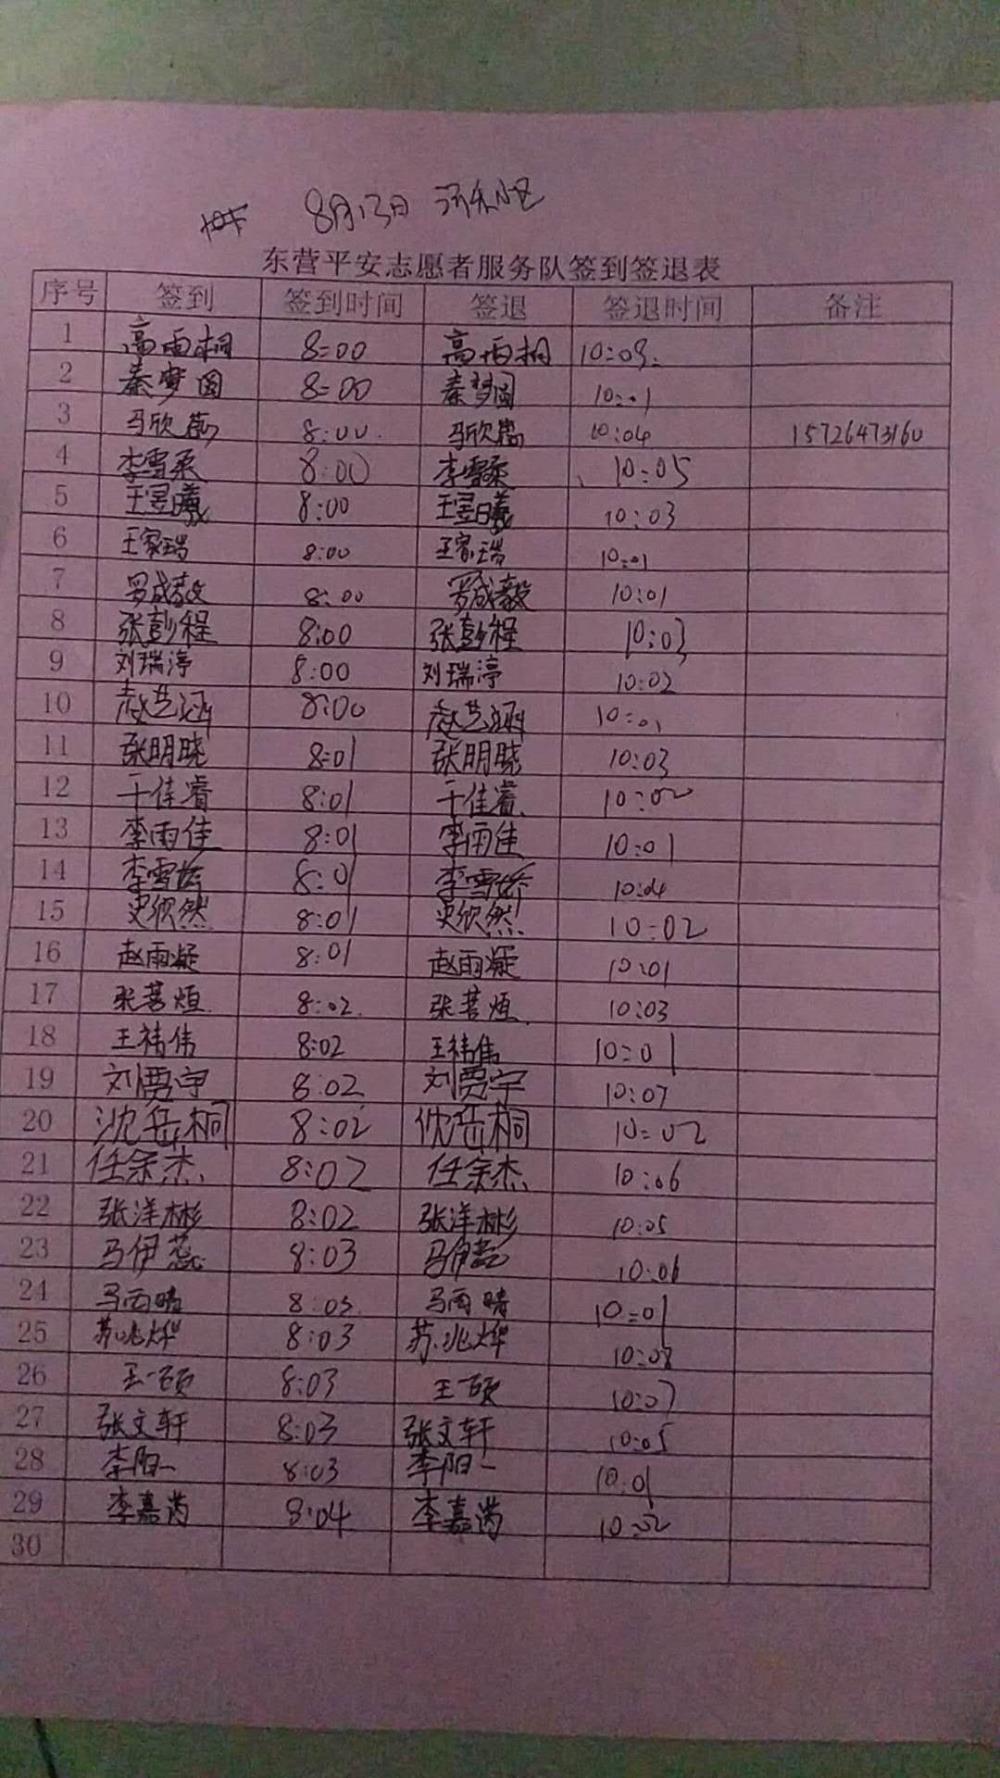 8月13日
东营平安志愿者服务队签到签退表
序号 签到 签到时间 签退 签退时间 备注
1 高雨桐 8:00 高雨桐 10:03.
2 秦梦圆 8:00 秦梦圆 10:01
3 马欣 8:00 马欣 10:04 15726473160
4 李雪柔 8:00 李雪柔 10:05
5 王昱曦 8:00 王昱曦 10:03
6 王家瑞 8:00 王家瑞 10:01
7 罗成毅 8:00 罗成毅 10:01
8 张彭程 8:00 张彭程 10:03
9 刘瑞渟 8:00 刘瑞渟 10:02
10 赵艺涵 8:00 赵艺涵 10:01
11 张明晓 8:01 张明晓 10:03
12 于佳睿 8:01 于佳睿 10:02
13 李雨佳 8:01 李雨佳 10:01
14 李雪娇 8:01 李雪娇 10:04
15 史欣然 8:01 史欣然 10:02
16 赵雨凝 8:01 赵雨凝 10:01
17 张 8:02 张 10:03
18 王祎伟 8:02 王祎伟 10:01
19 刘贾宇 8:02 刘贾宇 10:07
20 沈岳桐 8:02 沈岳桐 10:02
21 任余杰 8:02 任余杰 10:06
22 张洋彬 8:02 张洋彬 10:05
23 马伊蕊 8:03 马伊蕊 10:06
24 马雨晴 8:03 马雨晴 10:01
25 苏兆烨 8:03 苏兆烨 10:08
26 王一硕 8:03 王一硕 10:07
27 张文轩 8:03 张文轩 10:05
28 李阳一 8:03 李阳一 10:01
29 李嘉芮 8:04 李嘉芮 10:02
30